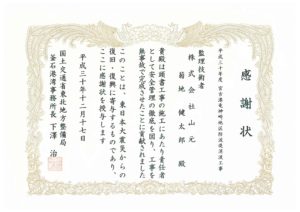 感謝状
平成三十年度 宮古港竜神崎地区防波堤築造工事
監理技術者
株式会社山元
菊地 健太郎 殿
貴殿は頭書工事の施工にあたり責任者
として安全管理の徹底を図り、工事を
無事故で完成させたことに貢献されました
このことは、東日本大震災からの
復旧・復興に寄与するものであり、
ここに感謝状を授与します
平成三十年十二月十七日
国土交通省東北地方整備局
釜石港湾事務所長 下澤 治